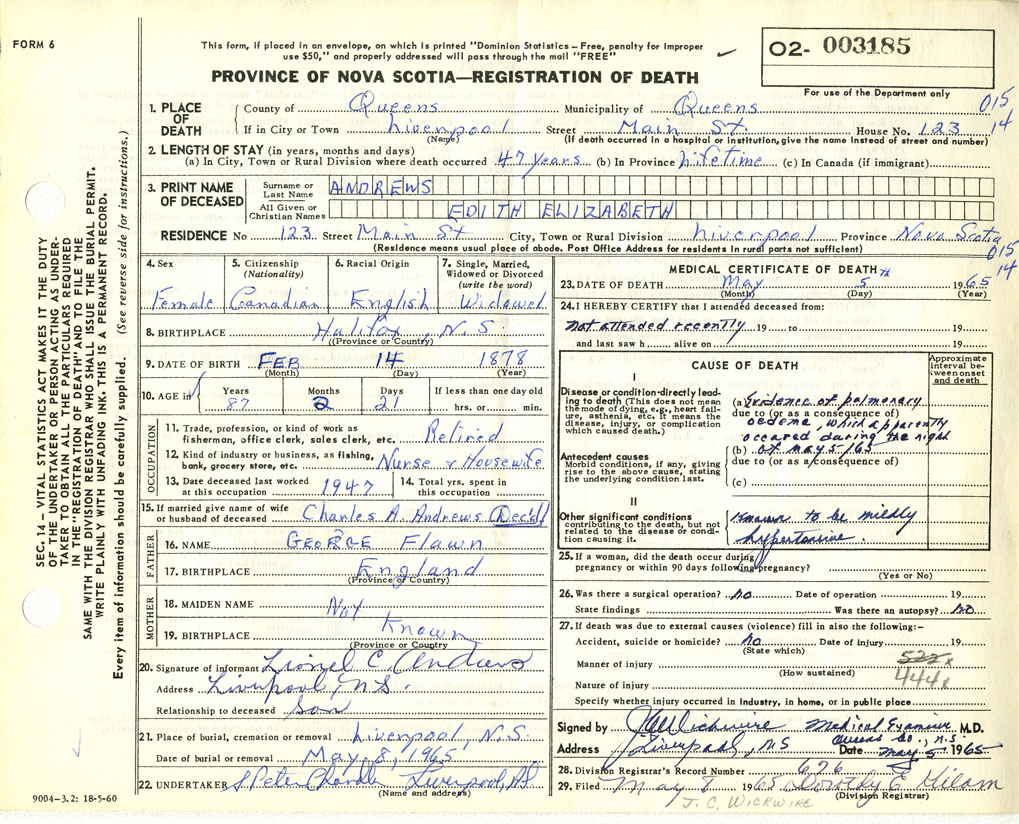 FORM 6
This form, if placed in an envelope, on which is printed "Dominion Statistics – Free, penalty for improper
use $50," and properly addressed will pass through the mail "FREE"
O2- 003185
For use of the Department only
PROVINCE OF NOVA SCOTIA—REGISTRATION OF DEATH
1. PLACE OF DEATH
County of Queens Municipality of Queens 015
If in City or Town Liverpool Street Main St. House No. 123 14
(Name) (If death occurred in a hospital or institution, give the name instead of street and number)
2. LENGTH OF STAY (in years, months and days)
(a) In City, Town or Rural Division where death occurred 47 years (b) In Province lifetime (c) In Canada (if immigrant)
3. PRINT NAME OF DECEASED
Surname or Last Name ANDREWS
All Given or Christian Names EDITH ELIZABETH
RESIDENCE No 123 Street Main St City, Town or Rural Division Liverpool Province Nova Scotia
(Residence means usual place of abode. Post Office Address for residents in rural parts not sufficient) 015
14
4. Sex 5. Citizenship (Nationality) 6. Racial Origin 7. Single, Married, Widowed or Divorced (write the word)
Female Canadian English Widowed
8. BIRTHPLACE Halifax, N.S.
(Province or Country)
9. DATE OF BIRTH FEB 14 1878
(Month) (Day) (Year)
10. AGE in Years Months Days If less than one day old
87 2 21 hrs. or min.
OCCUPATION
11. Trade, profession, or kind of work as
fisherman, office clerk, sales clerk, etc. Retired
12. Kind of industry or business, as fishing,
bank, grocery store, etc. Nurse & Housewife
13. Date deceased last worked at this occupation 1947 14. Total yrs. spent in this occupation
15. If married give name of wife
or husband of deceased Charles A. Andrews (Dec'd)
FATHER
16. NAME GEORGE Flawn
17. BIRTHPLACE England
(Province or Country)
MOTHER
18. MAIDEN NAME Not
19. BIRTHPLACE Known
(Province or Country)
20. Signature of informant Lionel C. Andrews
Address Liverpool, N.S.
Relationship to deceased Son
21. Place of burial, cremation or removal Liverpool, N.S.
Date of burial or removal May, 8, 1965
22. UNDERTAKER S Peter Chandler Liverpool, N.S.
(Name and address)
9004-3.2: 18-5-60
MEDICAL CERTIFICATE OF DEATH
23. DATE OF DEATH May 5 1965
(Month) (Day) (Year)
24. I HEREBY CERTIFY that I attended deceased from:
Not attended recently 19 to 19
and last saw h alive on 19
CAUSE OF DEATH
Approximate Interval between onset and death
I
Disease or condition directly leading to death (This does not mean the mode of dying, e.g., heart failure, asthenia, etc. It means the disease, injury, or complication which caused death.)
(a) Evidence of pulmonary
due to (or as a consequence of)
oedema, which apparently
occured during the night
(b) of May 5/65
due to (or as a consequence of)
(c)
Antecedent causes
Morbid conditions, if any, giving rise to the above cause, stating the underlying condition last.
II
Other significant conditions
contributing to the death, but not related to the disease or condition causing it.
Known to be mildly
hypertensive.
25. If a woman, did the death occur during
pregnancy or within 90 days following pregnancy?
(Yes or No)
26. Was there a surgical operation? no Date of operation 19
State findings Was there an autopsy? no
27. If death was due to external causes (violence) fill in also the following:–
Accident, suicide or homicide? no Date of injury 19
(State which)
Manner of injury 522x
(How sustained) 444x
Nature of injury
Specify whether injury occurred in industry, in home, or in public place
Signed by J C Wickwire Medical Examiner M.D.
Queens Co., N.S.
Address Liverpool, NS Date May 5 1965
28. Division Registrar's Record Number 626
29. Filed May 8 1965 Dorothy E
(Division Registrar)
J. C. WICKWIRE
SEC. 14 – VITAL STATISTICS ACT MAKES IT THE DUTY
OF THE UNDERTAKER OR PERSON ACTING AS UNDER-
TAKER TO OBTAIN ALL THE PARTICULARS REQUIRED
IN THE "REGISTRATION OF DEATH" AND TO FILE THE
SAME WITH THE DIVISION REGISTRAR WHO SHALL ISSUE THE BURIAL PERMIT.
WRITE PLAINLY WITH UNFADING INK. THIS IS A PERMANENT RECORD.
Every item of information should be carefully supplied. (See reverse side for instructions.)